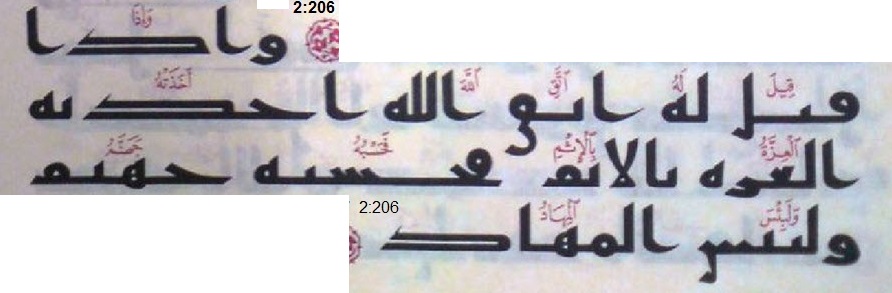 2:206
وَإِذَا
واذا
قِيلَ لَهُ ٱتَّقِ ٱللَّهَ أَخَذَتْهُ
قيل له اتق الله اخذته
ٱلْعِزَّةُ بِٱلْإِثْمِ فَحَسْبُهُۥ جَهَنَّمُ
العزه بالاثم فحسبه جهنم
2:206
وَلَبِئْسَ ٱلْمِهَادُ
ولبئس المهاد